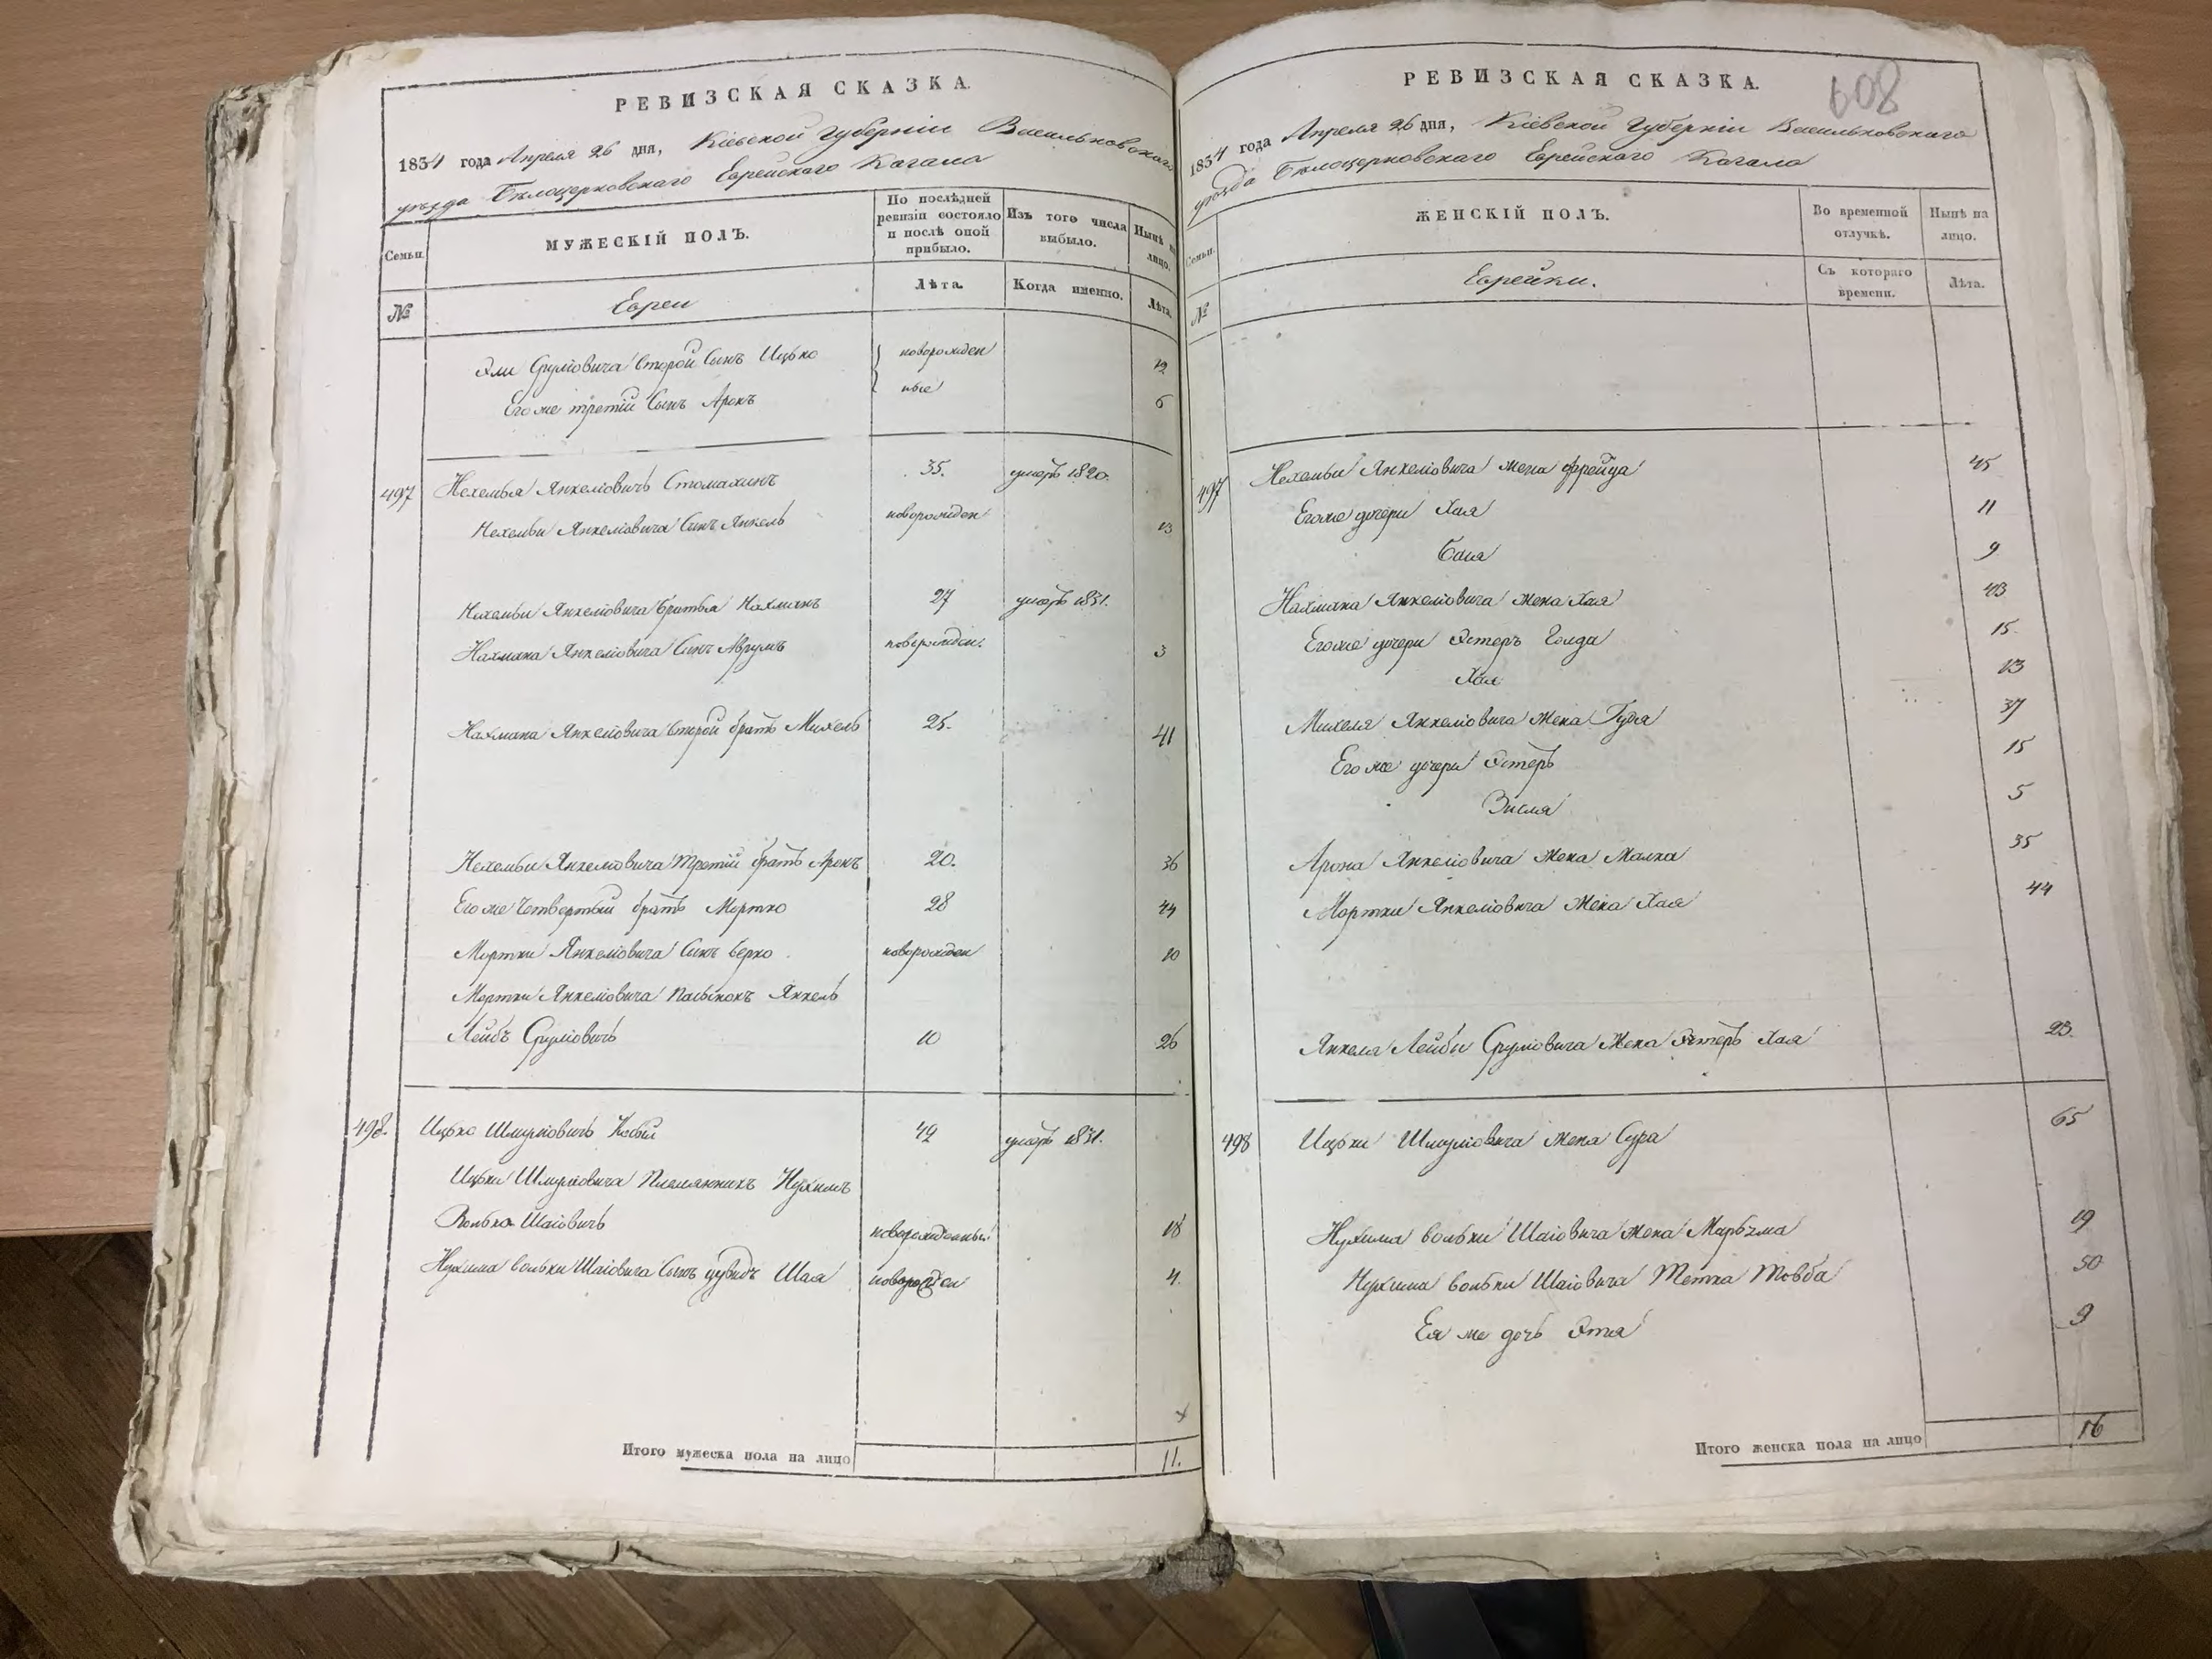 РЕВИЗСКАЯ СКАЗКА.
1834 года Апреля 26 дня, Кіевской Губерніи Васильковскаго
уѣзда Бѣлоцерковскаго Еврейскаго Кагала
Семьи. МУЖЕСКІЙ ПОЛЪ. По послѣдней ревизіи состояло и послѣ оной прибыло. Изъ того числа выбыло. Нынѣ на лицо.
№ Евреи Лѣта. Когда именно. Лѣта.
Эли Сруліовича второй Сынъ Ицько новорожден 12
Его же третій Сынъ Аронъ ные 6
497 Нехемья Янкеліовичъ Стомахинъ 35. умеръ 1820.
Нехемьи Янкеліовича Сынъ Янкель новорожден 13
Нехемьи Янкеліовича братья Нахманъ 27 умеръ 1831.
Нахмана Янкеліовича Сынъ Аврумъ новорожден. 3
Нахмана Янкеліовича второй братъ Михель 25. 41
Нехемьи Янкеліовича третій братъ Аронъ 20. 36
Его же четвертый братъ Мортко 28 44
Мортки Янкеліовича Сынъ Берко новорожден 10
Мортки Янкеліовича пасынокъ Янкель
Лейбъ Сруліовичъ 10 26
498. Ицько Шмуліовичъ 49 умеръ 1831.
Ицьки Шмуліовича Племянникъ Нухимъ
Волько Шаіовичъ новорожденный 18
Нухима Вольки Шаіовича Сынъ Шая новорожден 4.
Итого мужеска пола на лицо 11.
608
РЕВИЗСКАЯ СКАЗКА.
1834 года Апреля 26 дня, Кіевской Губерніи Васильковскаго
уѣзда Бѣлоцерковскаго Еврейскаго Кагала
Семьи. ЖЕНСКІЙ ПОЛЪ. Во временной отлучкѣ. Нынѣ на лицо.
№ Еврейки. Съ котораго времени. Лѣта.
497 Нехемьи Янкеліовича жена Фрейда 45
Егоже дочери Хая 11
Бася 9
Нахмана Янкеліовича жена Хая 43
Егоже дочери Эстеръ Голда 15.
Хая 13
Михеля Янкеліовича жена Гудя 37
Его же дочери Эстеръ 15
Зисля 5
Арона Янкеліовича жена Малка 35
Мортки Янкеліовича жена Хая 44
Янкеля Лейбы Сруліовича жена Эстеръ Хая 23.
498 Ицьки Шмуліовича жена Сура 65
Нухима Вольки Шаіовича жена Марьяма 19
Нухима Вольки Шаіовича Тетка Товба 50
Ея же дочь Этя 9
Итого женска пола на лицо 16